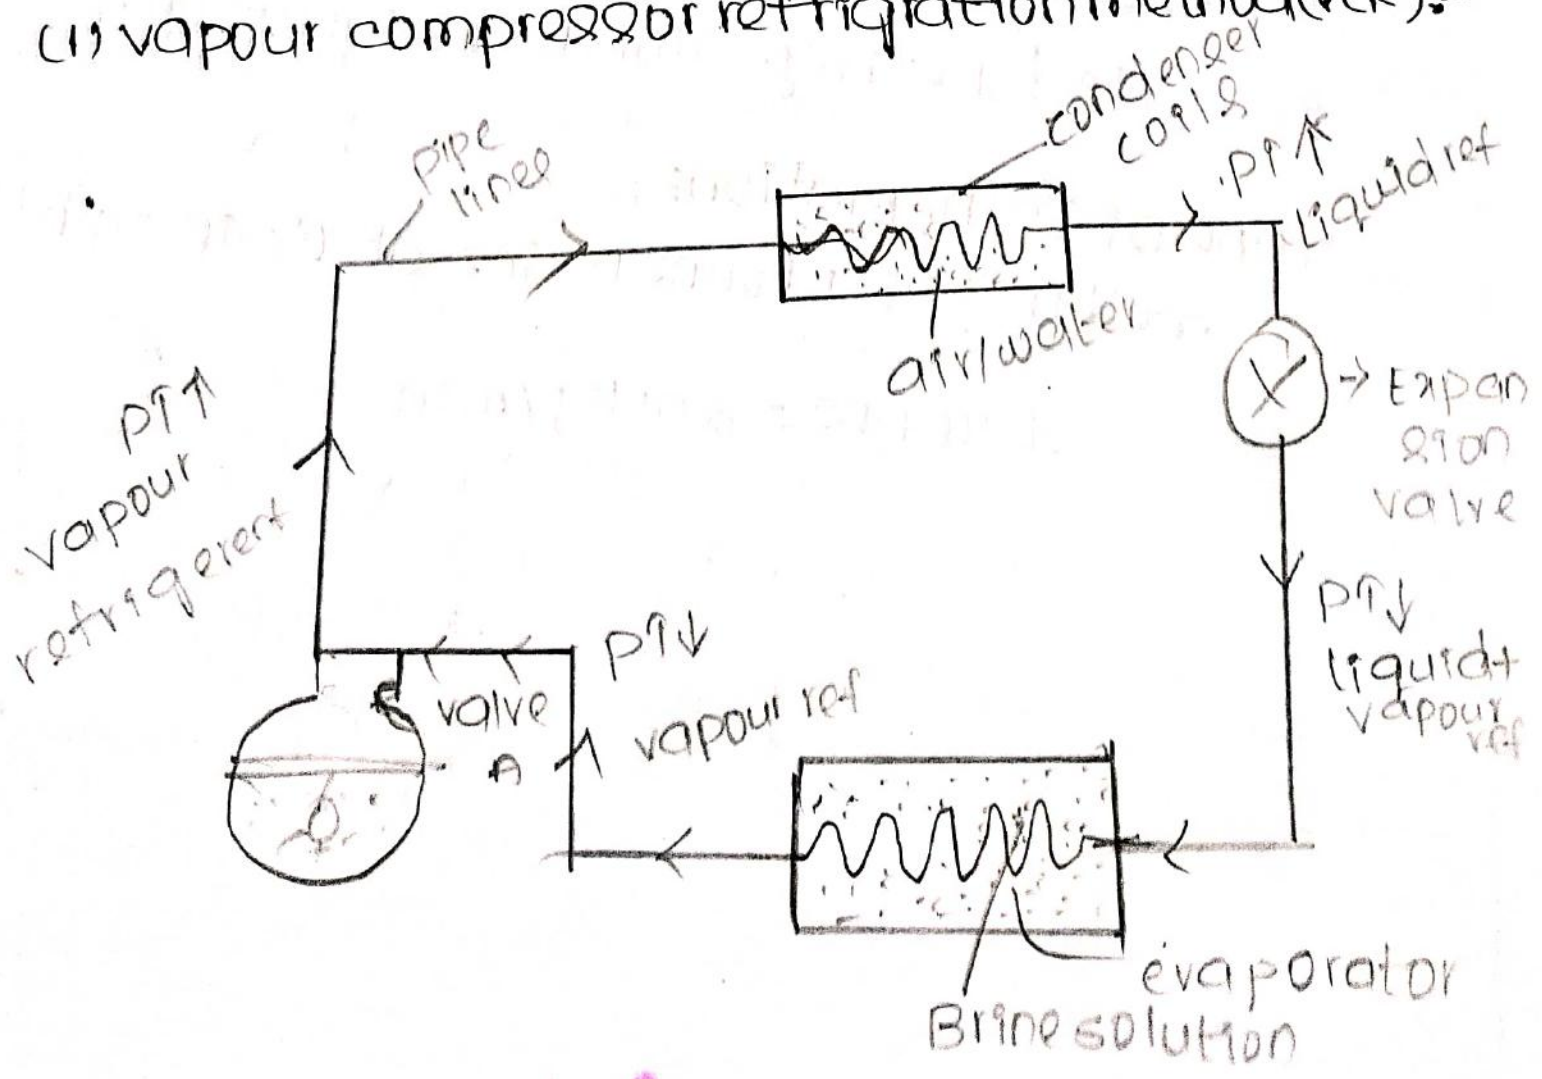 (1) vapour compressor refrigiration method
pipe
lines
condenser
coils
PT↑
liquid ref
air/water
→ Expan
sion
valve
PT↑
vapour
refrigerent
PT↓
liquid+
vapour
ref
PT↓
vapour ref
valve
A
evaporator
Brine solution